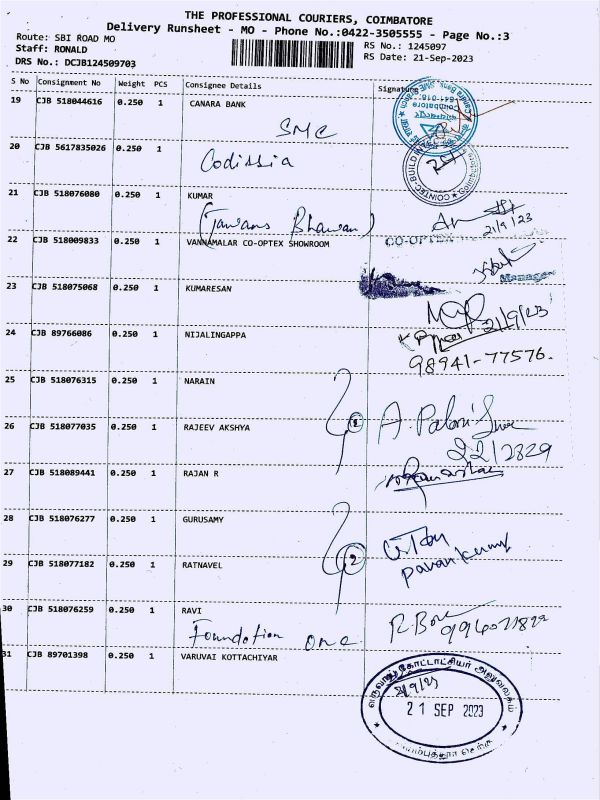 THE PROFESSIONAL COURIERS, COIMBATORE
Delivery Runsheet - MO - Phone No.:0422-3505555 - Page No.:3
Route: SBI ROAD MO
RS No.: 1245097
Staff: RONALD
RS Date: 21-Sep-2023
DRS No.: DCJB124509703
S No Consignment No Weight PCS Consignee Details Signature
19 CJB 518044616 0.250 1 CANARA BANK
SMC
20 CJB 5617835026 0.250 1
Codissia
21 CJB 518076080 0.250 1 KUMAR
21/9/23
22 CJB 518009833 0.250 1 VANNAMALAR CO-OPTEX SHOWROOM
CO-OPTEX
Manager
23 CJB 518075068 0.250 1 KUMARESAN
21/9/23
24 CJB 89766086 0.250 1 NIJALINGAPPA
98941-77576.
25 CJB 518076315 0.250 1 NARAIN
26 CJB 518077035 0.250 1 RAJEEV AKSHYA
2
27 CJB 518089441 0.250 1 RAJAN R
28 CJB 518076277 0.250 1 GURUSAMY
29 CJB 518077182 0.250 1 RATNAVEL
2
Pavankumar
30 CJB 518076259 0.250 1 RAVI
Foundation one
31 CJB 89701398 0.250 1 VARUVAI KOTTACHIYAR
21 SEP 2023